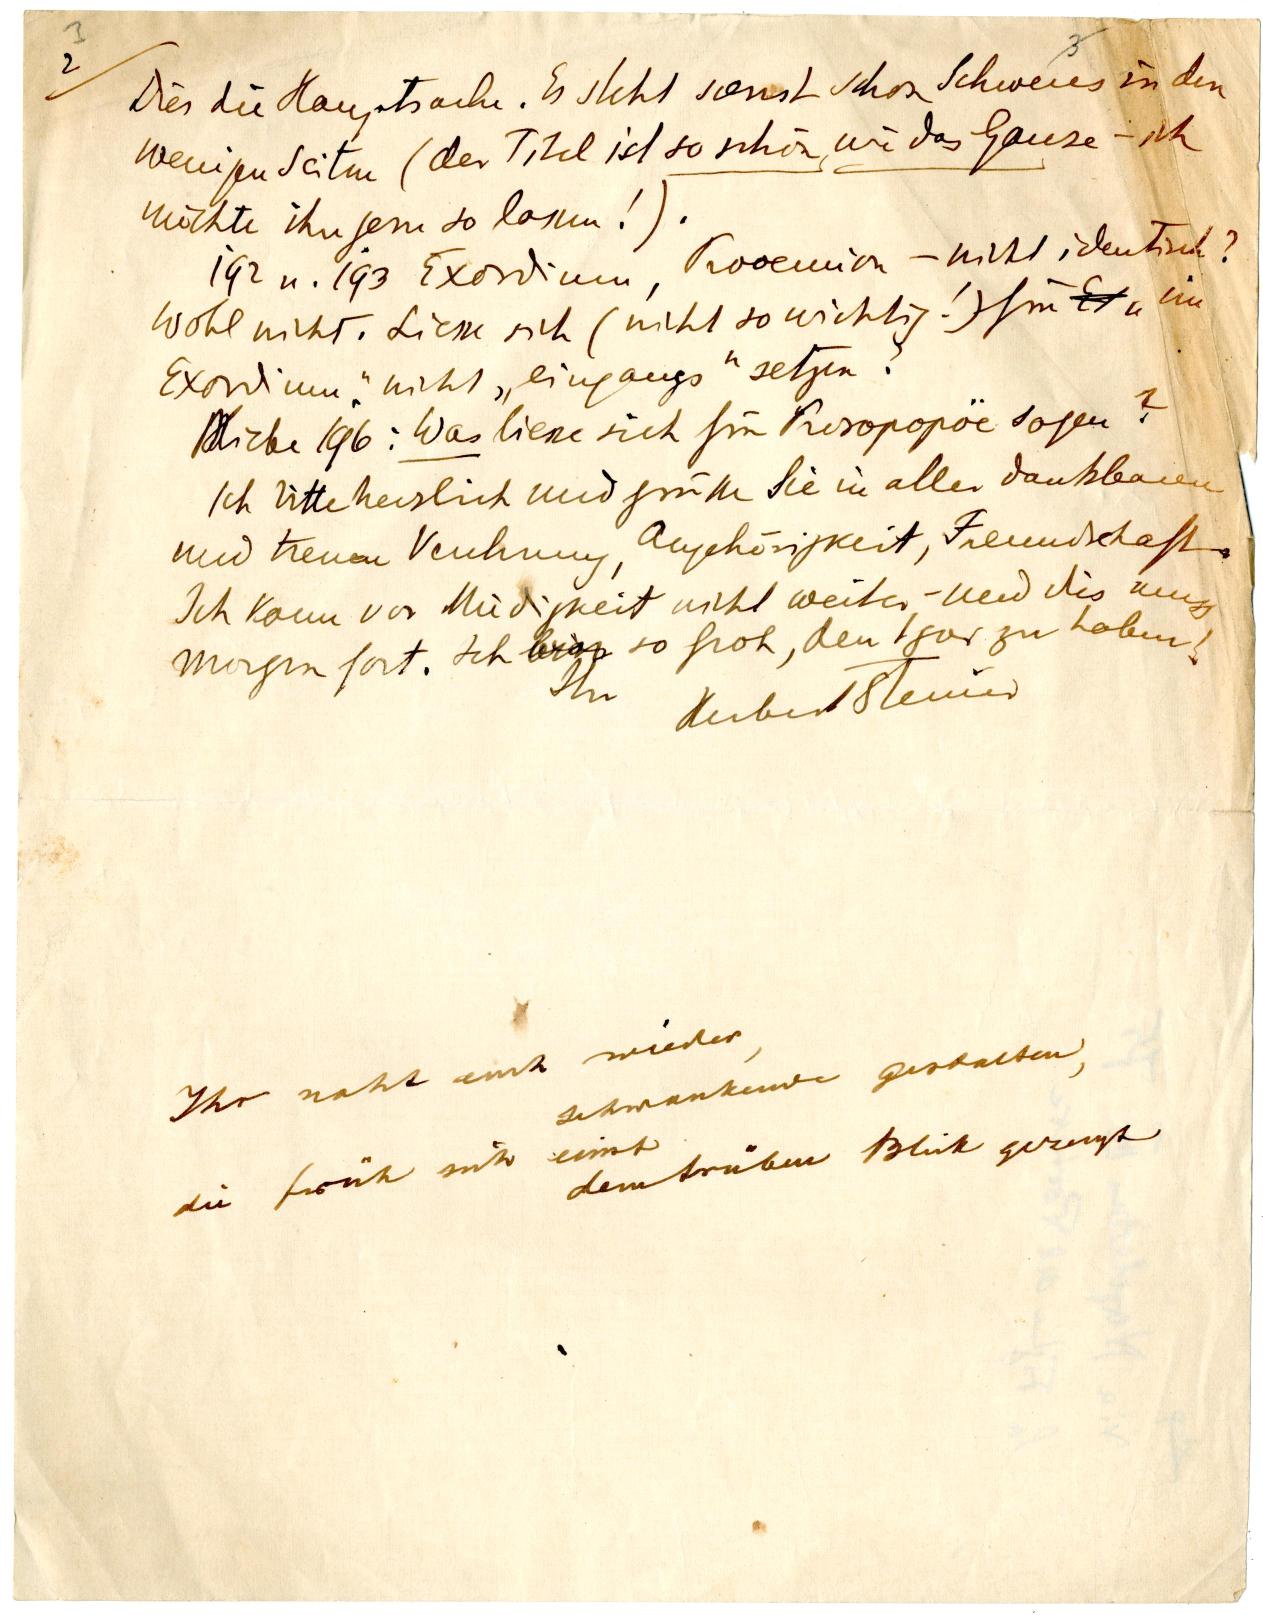 3
2
3
Dies die Hauptsache. Es steht sonst schon Schweres in den
wenigen Seiten (der Titel ist so schön, wie das Ganze – ich
möchte ihn gern so lassen!).
192 u. 193 Exordium, Prooemion – nicht identisch?
Wohl nicht. Liesse sich (nicht so wichtig!) für E „im
Exordium“ nicht „eingangs“ setzen?
196: Was liesse sich für Prosopopöe sagen?
Ich bitte herzlich und grüsse Sie in aller dankbaren
und treuen Verehrung, Angehörigkeit, Freundschaft.
Ich kann vor Müdigkeit nicht weiter – und dies muss
morgen fort. Ich bin so froh, den Igor zu haben!
Ihr
Herbert Steiner
Ihr naht euch wieder,
schwankende gestalten,
die früh sich einst
dem trüben Blick gezeigt